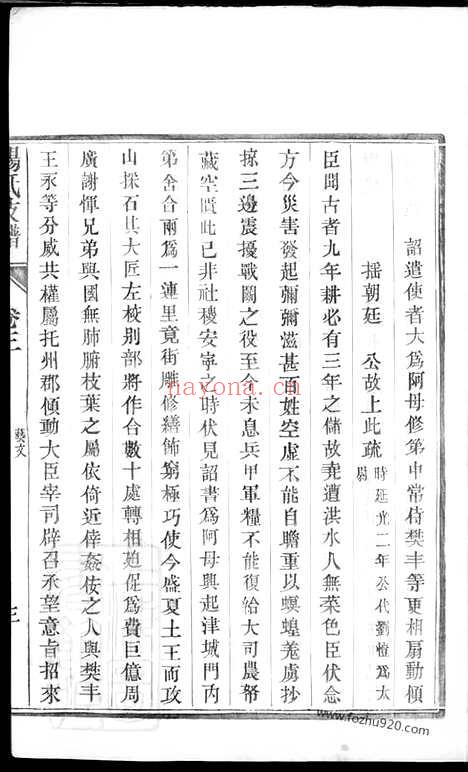 詔遣使者大為阿母修第中常侍樊豐等更相扇動傾
搖朝廷　公故上此疏時延光二年公代劉愷為太
尉
臣聞古者九年耕必有三年之儲故堯遭洪水人無菜色臣伏念
方今災害發起彌彌滋甚百姓空虛不能自贍重以螟蝗羌虜抄
掠三邊震擾戰鬭之役至今未息兵甲軍糧不能復給大司農帑
藏空匱此已非社稷安寧之時伏見詔書為阿母興起津城門內
第舍合兩為一連里竟街雕修繕飾窮極巧使今盛夏土王而攻
山採石其大匠左校別部將作合數十處轉相廹促為費巨億周
廣謝惲兄弟與國無肺腑枝葉之屬依倚近倖姦佞之人與樊豐
王永等分威共權屬托州郡傾動大臣宰司辟召承望意旨招來
楊氏支譜
卷三
藝文
三
nayona.cn
www.fozhu920.com